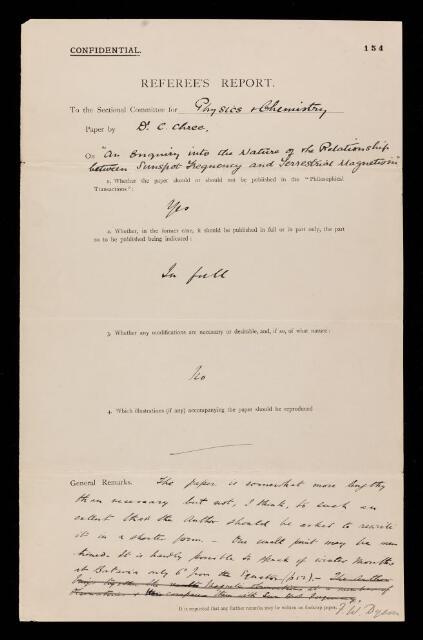 CONFIDENTIAL.
154
REFEREE'S REPORT.
To the Sectional Committee for Physics & Chemistry
Paper by Dr. C. Chree.
On "An Enquiry into the Nature of the Relationship
between Sunspot Frequency and Terrestrial Magnetism"
1. Whether the paper should or should not be published in the "Philosophical
Transactions":
Yes
2. Whether, in the former case, it should be published in full or in part only, the part
not to be published being indicated:
In full
3. Whether any modifications are necessary or desirable, and, if so, of what nature:
No
4. Which illustrations (if any) accompanying the paper should be reproduced
General Remarks. The paper is somewhat more lengthy
than necessary but not, I think, to such an
extent that the Author should be asked to rewrite
it in a shorter form. – One small point may be men
tioned. It is hardly possible to speak of winter months
at Batavia only 6° from the Equator (p 52). – The Author
together the results Magnetic at a number of
compares them with Sun Spot frequency.
It is requested that any further remarks may be written on foolscap paper.
F. W. Dyson